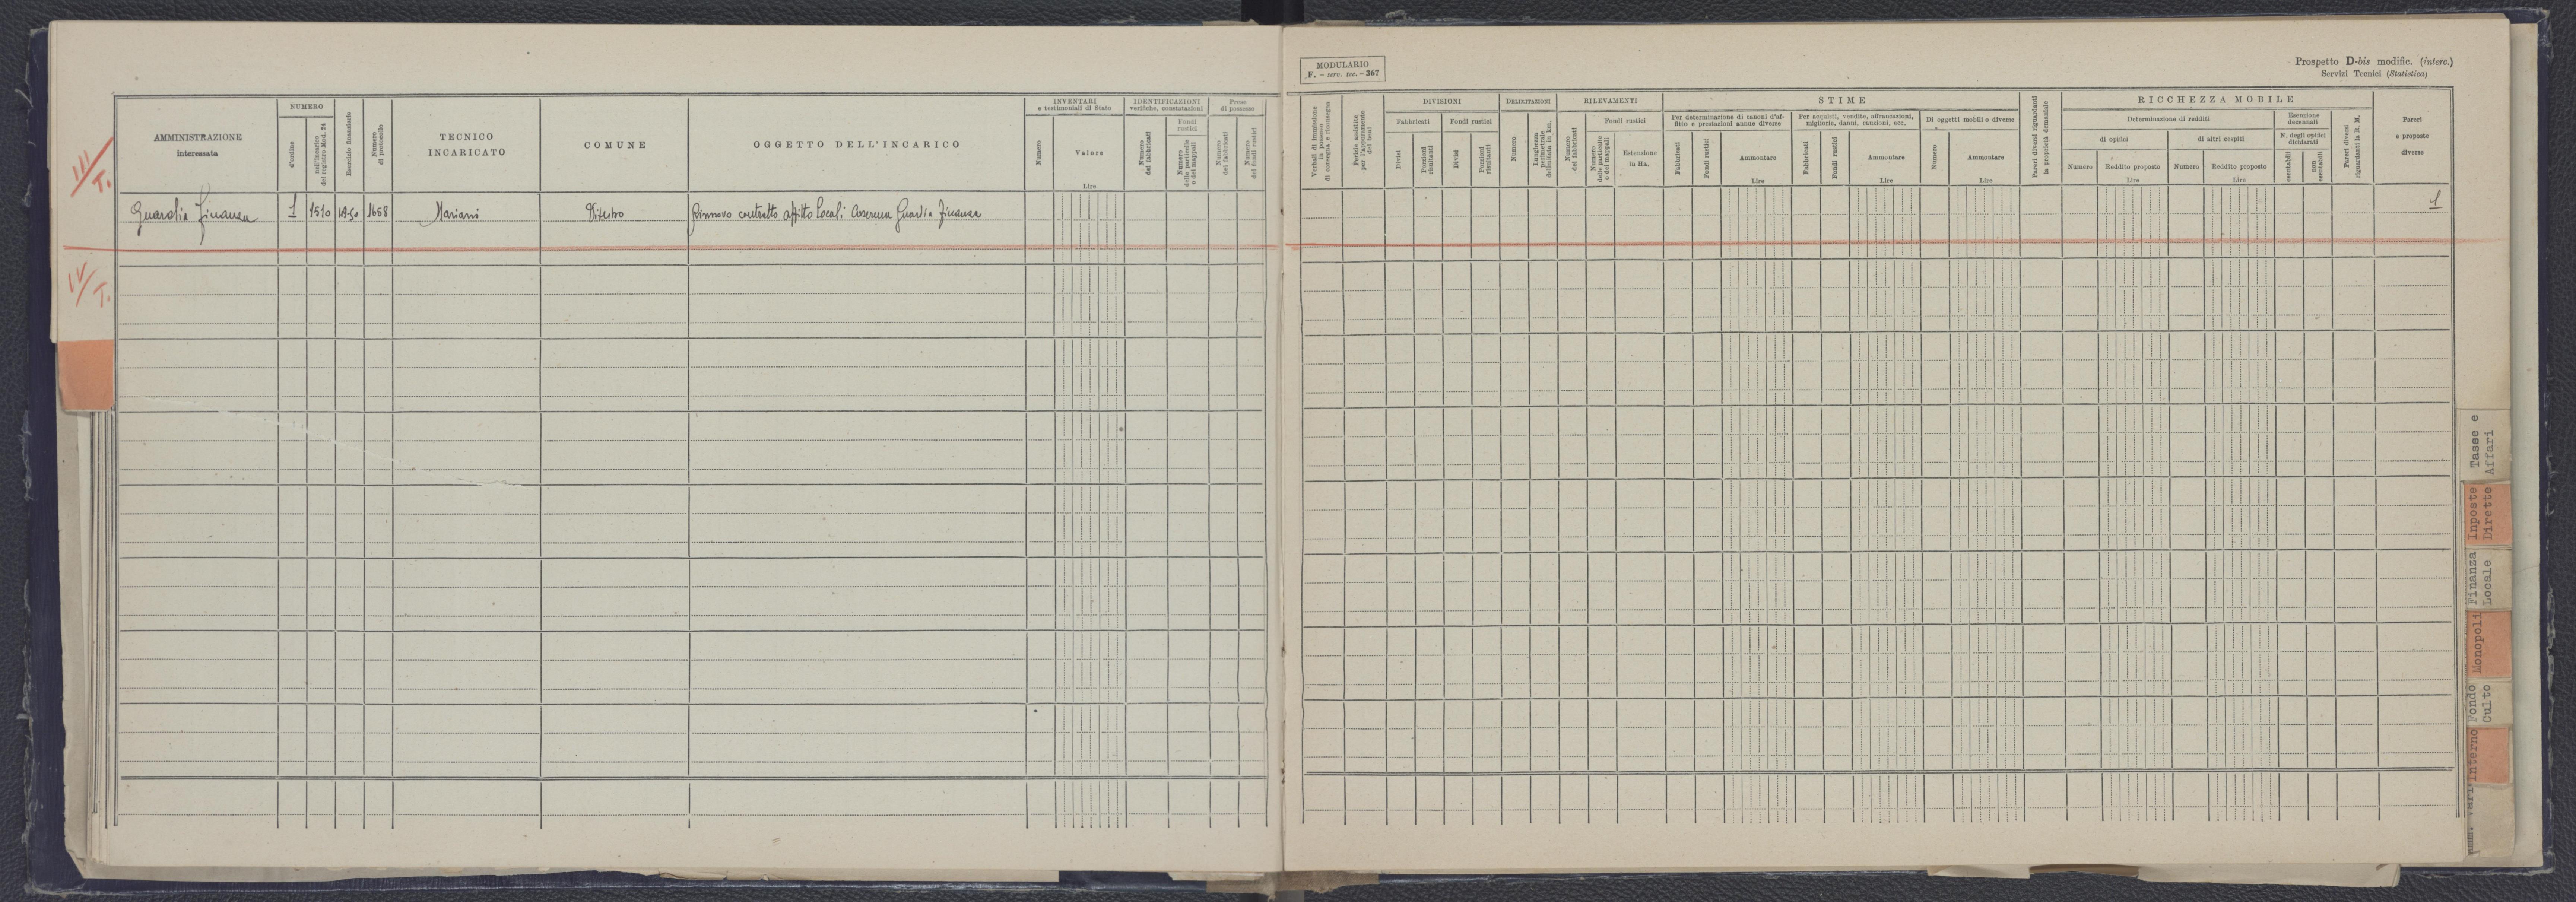 MODULARIO
F. - serv. tec. - 367
Prospetto D-bis modific. (interc.)
Servizi Tecnici (Statistica)
AMMINISTRAZIONE
interessata
NUMERO
d'ordine
dell'incarico
del registro Mod. 24
Esercizio finanziario
Numero
di protocollo
TECNICO
INCARICATO
COMUNE
OGGETTO DELL'INCARICO
INVENTARI
e testimoniali di Stato
Numero
Valore
Lire
IDENTIFICAZIONI
verifiche, constatazioni
Numero
dei fabbricati
Fondi
rustici
Numero
delle particelle
o dei mappali
Prese
di possesso
Numero
dei fabbricati
Numero
dei fondi rustici
Verbali di immissione
in possesso
di consegna e riconsegna
Perizie assistite
per l'accertamento
dei beni
DIVISIONI
Fabbricati
Divisi
Porzioni
risultanti
Fondi rustici
Divisi
Porzioni
risultanti
DELIMITAZIONI
Numero
Lunghezza
perimetrale
delimitata in km.
RILEVAMENTI
Numero
dei fabbricati
Fondi rustici
Numero
delle particelle
o dei mappali
Estensione
in Ha.
STIME
Per determinazione di canoni d'af-
fitto e prestazioni annue diverse
Fabbricati
Fondi rustici
Ammontare
Lire
Per acquisti, vendite, affrancazioni,
migliorie, danni, cauzioni, ecc.
Fabbricati
Fondi rustici
Ammontare
Lire
Di oggetti mobili e diverse
Numero
Ammontare
Lire
Pareri diversi riguardanti
la proprietà demaniale
RICCHEZZA MOBILE
Determinazione di redditi
di opifici
Numero
Reddito proposto
Lire
di altri cespiti
Numero
Reddito proposto
Lire
Esenzione
decennali
N. degli opifici
dichiarati
esentabili
non
esentabili
Pareri diversi
riguardanti la R. M.
Pareri
e proposte
diverse
III/T.
Guardia Finanza 1 1510 49-50 1658 Mariani Viterbo Rinnovo contratto affitto locali caserma Guardia Finanza 1
IV/T.
Tasse e
Affari
Inposte
Dirette
Finanza
Locale
Monopoli
Fondo
Culto
Interno